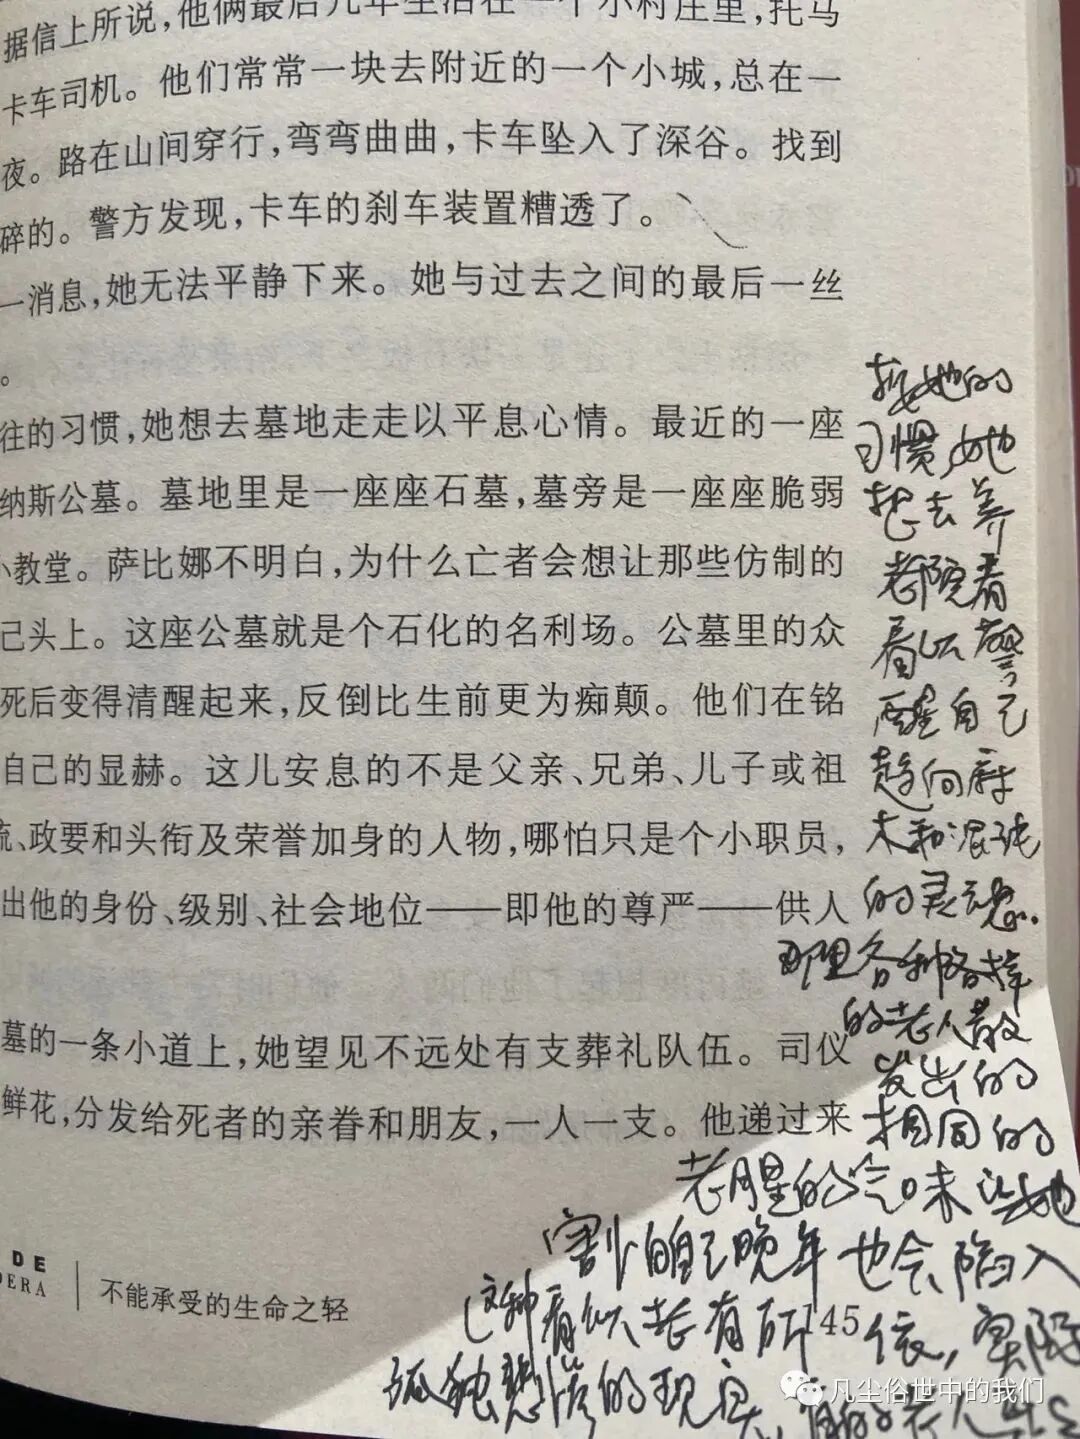 据信上所说，他俩最后几年生活在一个小村庄里，托马
卡车司机。他们常常一块去附近的一个小城，总在一
夜。路在山间穿行，弯弯曲曲，卡车坠入了深谷。找到
碎的。警方发现，卡车的刹车装置糟透了。
一消息，她无法平静下来。她与过去之间的最后一丝
。
往的习惯，她想去墓地走走以平息心情。最近的一座
纳斯公墓。墓地里是一座座石墓，墓旁是一座座脆弱
小教堂。萨比娜不明白，为什么亡者会想让那些仿制的
己头上。这座公墓就是个石化的名利场。公墓里的众
死后变得清醒起来，反倒比生前更为痴颠。他们在铭
自己的显赫。这儿安息的不是父亲、兄弟、儿子或祖
流、政要和头衔及荣誉加身的人物，哪怕只是个小职员，
出他的身份、级别、社会地位——即他的尊严——供人
墓的一条小道上，她望见不远处有支葬礼队伍。司仪
鲜花，分发给死者的亲眷和朋友，一人一支。他递过来
按她的
习惯，她
想去养
老院看
看以警
醒自己
趋向麻
木和混沌
的灵魂.
那里各种各样
的老人散
发出的
相同的
老腥的气味让她
害怕自己晚年也会陷入
这种看似老有所依，实际
孤独悲惨的现实，有的老人
DE
DERA
不能承受的生命之轻
145
凡尘俗世中的我们